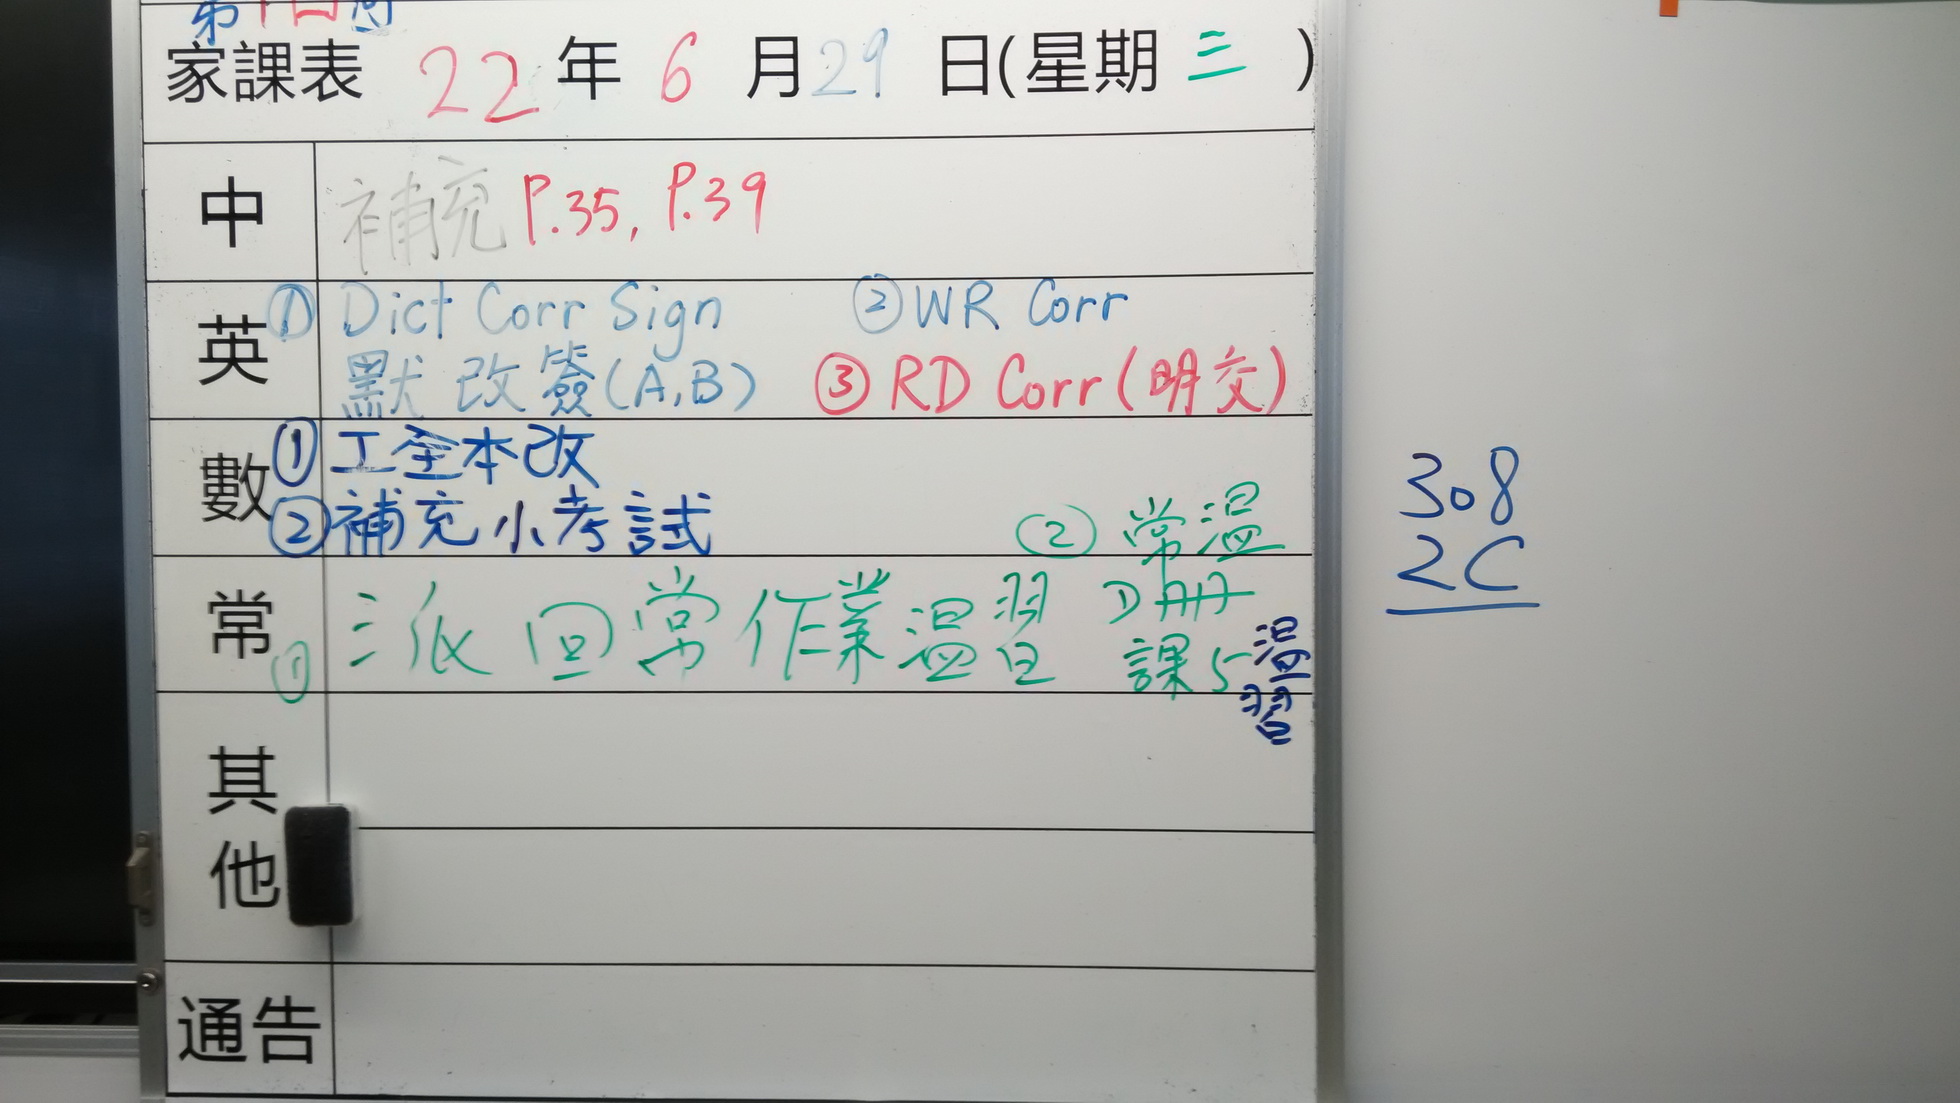 第十四周
家課表 22年6月29日(星期三)
中 補充 P.35, P.39
英 ① Dict Corr Sign ② WR Corr
默 改 簽(A,B) ③ RD Corr (明交)
數 ① 工全本改
② 補充小考試
常 ① 三派回常作業溫習
② 常溫
D冊
課5溫習
其他
通告
308
2C